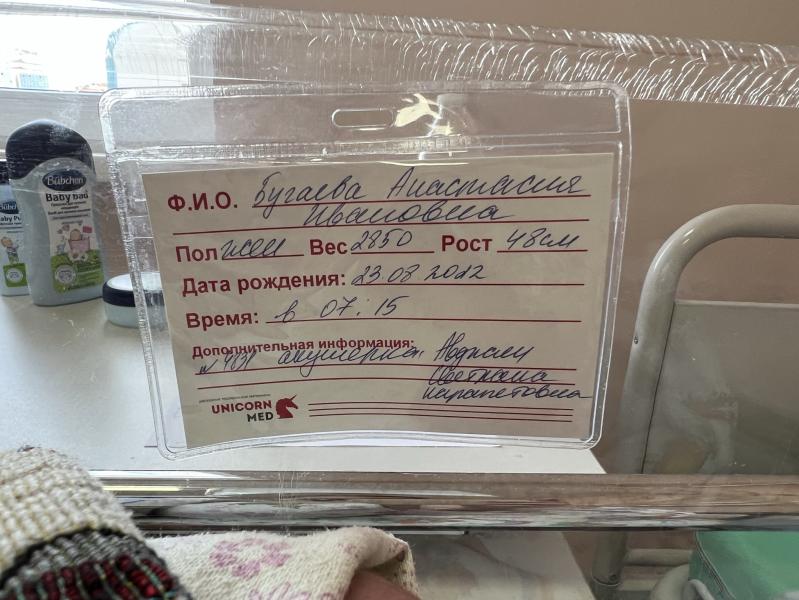 Bübchen
Baby Bad
Ф.И.О. Бугаева Анастасия
Ивановна
Пол жен Вес 2850 Рост 48см
Дата рождения: 23 08 2022
Время: в 07:15
Дополнительная информация:
N 4831 акушерка
Светлана
Карапетовна
UNICORN
MED